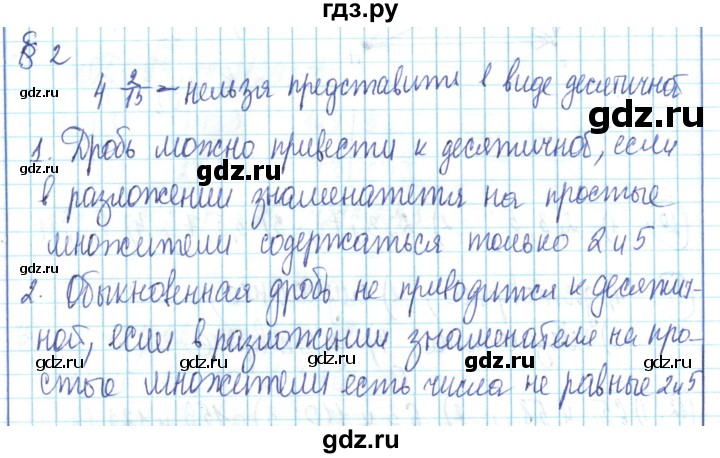 гдз.ру
§ 2
4 2/15 - нельзя представить в виде десятичной
1. Дробь можно привести к десятичной, если
в разложении знаменателя на простые
множители содержаться только 2 и 5
2. Обыкновенная дробь не приводится к десятич-
ной, если в разложении знаменателя на про-
стые множители есть числа не равные 2 и 5
gdz.ru